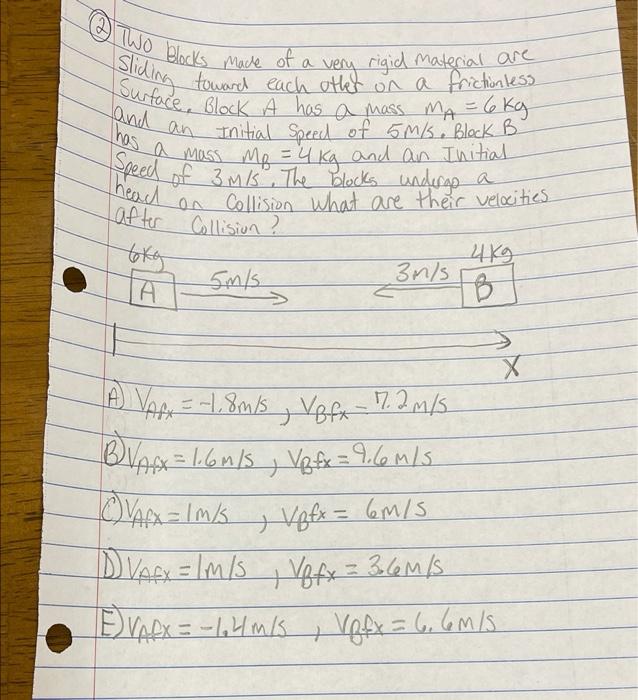 ② Two blocks made of a very rigid material are
Sliding toward each other on a frictionless
Surface. Block A has a mass mA = 6 kg
and an Initial Speed of 5m/s. Block B
has a mass mB = 4 kg and an Initial
Speed of 3 m/s. The blocks undergo a
head on Collision what are their velocities
after Collision?
6kg 4kg
A 5m/s 3m/s B
X
A) VAfx = -1.8m/s , VBfx = 7.2 m/s
B) VAfx = 1.6 m/s , VBfx = 9.6 m/s
C) VAfx = 1m/s , VBfx = 6m/s
D) VAfx = 1m/s , VBfx = 3.6m/s
E) VAfx = -1.4m/s , VBfx = 6.6m/s